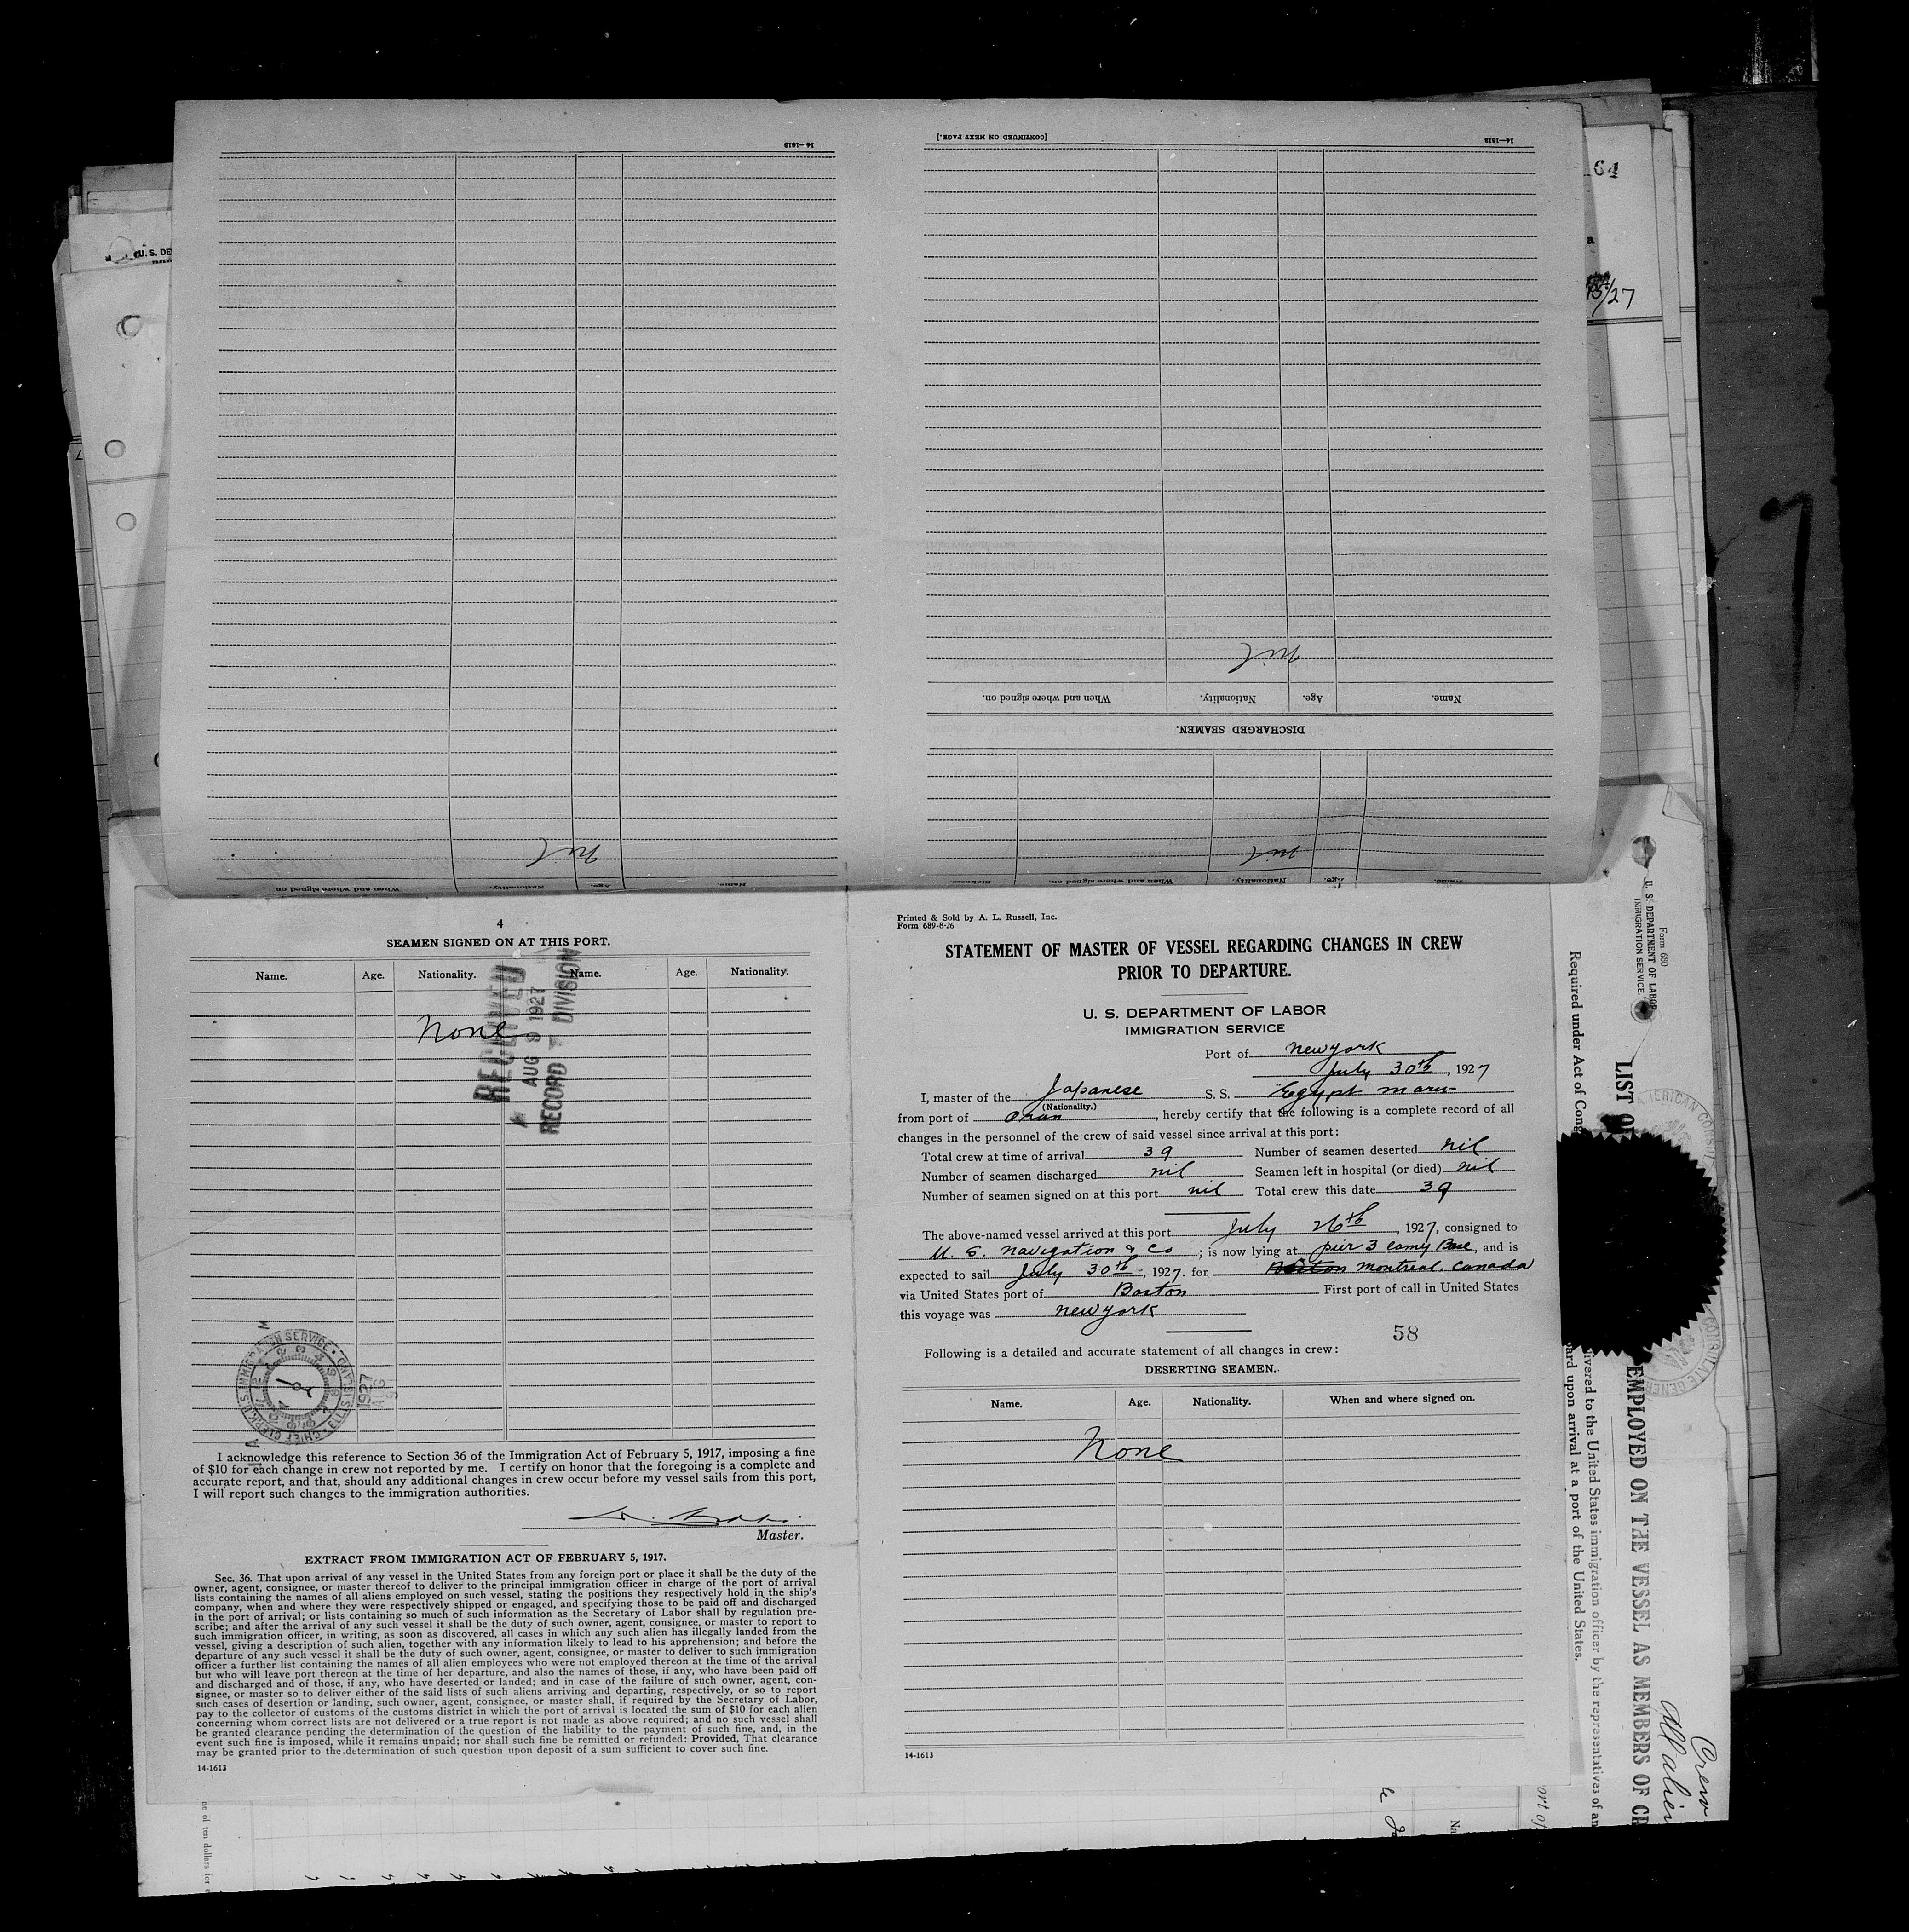 [CONTINUED ON NEXT PAGE.]
14—1613
14—1613
nil
When and where signed on. Nationality. Age. Name.
DISCHARGED SEAMEN.
nil
nil
Nickname. When and where signed on. Nationality. Age. Name.
When and where signed on. Nationality. Age. Name.
64
a
/27
U. S. DE
4
SEAMEN SIGNED ON AT THIS PORT.
Name. Age. Nationality. Name. Age. Nationality.
None
RECEIVED
AUG 9 1927
RECORD DIVISION
U.S. IMMIGRATION SERVICE · CHIEF CLERK · ELLIS ISLAND
1927
AUG
9
I acknowledge this reference to Section 36 of the Immigration Act of February 5, 1917, imposing a fine
of $10 for each change in crew not reported by me. I certify on honor that the foregoing is a complete and
accurate report, and that, should any additional changes in crew occur before my vessel sails from this port,
I will report such changes to the immigration authorities.
Master.
EXTRACT FROM IMMIGRATION ACT OF FEBRUARY 5, 1917.
Sec. 36. That upon arrival of any vessel in the United States from any foreign port or place it shall be the duty of the
owner, agent, consignee, or master thereof to deliver to the principal immigration officer in charge of the port of arrival
lists containing the names of all aliens employed on such vessel, stating the positions they respectively hold in the ship's
company, when and where they were respectively shipped or engaged, and specifying those to be paid off and discharged
in the port of arrival; or lists containing so much of such information as the Secretary of Labor shall by regulation pre-
scribe; and after the arrival of any such vessel it shall be the duty of such owner, agent, consignee, or master to report to
such immigration officer, in writing, as soon as discovered, all cases in which any such alien has illegally landed from the
vessel, giving a description of such alien, together with any information likely to lead to his apprehension; and before the
departure of any such vessel it shall be the duty of such owner, agent, consignee, or master to deliver to such immigration
officer a further list containing the names of all alien employees who were not employed thereon at the time of the arrival
but who will leave port thereon at the time of her departure, and also the names of those, if any, who have been paid off
and discharged and of those, if any, who have deserted or landed; and in case of the failure of such owner, agent, con-
signee, or master so to deliver either of the said lists of such aliens arriving and departing, respectively, or so to report
such cases of desertion or landing, such owner, agent, consignee, or master shall, if required by the Secretary of Labor,
pay to the collector of customs of the customs district in which the port of arrival is located the sum of $10 for each alien
concerning whom correct lists are not delivered or a true report is not made as above required; and no such vessel shall
be granted clearance pending the determination of the question of the liability to the payment of such fine, and, in the
event such fine is imposed, while it remains unpaid; nor shall such fine be remitted or refunded: Provided, That clearance
may be granted prior to the determination of such question upon deposit of a sum sufficient to cover such fine.
14-1613
Printed & Sold by A. L. Russell, Inc.
Form 689-8-26
STATEMENT OF MASTER OF VESSEL REGARDING CHANGES IN CREW
PRIOR TO DEPARTURE.
U. S. DEPARTMENT OF LABOR
IMMIGRATION SERVICE
Port of New York
July 30th, 1927
I, master of the Japanese S. S. Egypt maru
(Nationality.)
from port of Oran, hereby certify that the following is a complete record of all
changes in the personnel of the crew of said vessel since arrival at this port:
Total crew at time of arrival 39 Number of seamen deserted nil
Number of seamen discharged nil Seamen left in hospital (or died) nil
Number of seamen signed on at this port nil Total crew this date 39
The above-named vessel arrived at this port July 26th, 1927, consigned to
U. S. Navigation & Co; is now lying at pier 3 Base, and is
expected to sail July 30th, 1927. for Boston Montreal. Canada
via United States port of Boston First port of call in United States
this voyage was New York
58
Following is a detailed and accurate statement of all changes in crew:
DESERTING SEAMEN.
Name. Age. Nationality. When and where signed on.
None
14-1613
Form 680
U. S. DEPARTMENT OF LABOR
IMMIGRATION SERVICE
LIST O
EMPLOYED ON THE VESSEL AS MEMBERS OF CR
Required under Act of Cong
livered to the United States immigration officer by the representatives of an
ard upon arrival at a port of the United States.
AMERICAN CONSUL
CONSULATE GENER
Crew
All alien
ort of
ne of ten dollars for e